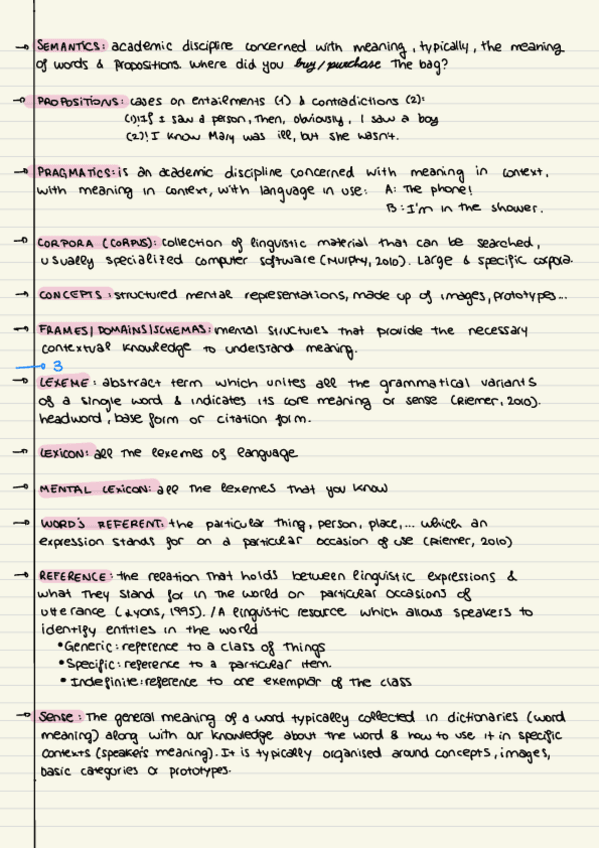 → SEMANTICS: academic discipline concerned with meaning, typically, the meaning
of words & propositions. Where did you buy/purchase the bag?
→ PROPOSITIONS: cases on entailments (1) & contradictions (2):
(1)!If I saw a person, then, obviously, I saw a boy
(2)! I know Mary was ill, but she wasn't.
→ PRAGMATICS: is an academic discipline concerned with meaning in context,
with meaning in context, with language in use: A: The phone!
B: I'm in the shower.
→ CORPORA (CORPUS): collection of linguistic material that can be searched,
usually specialized computer software (Murphy, 2010). Large & specific corpora.
→ CONCEPTS: structured mental representations, made up of images, prototypes...
→ FRAMES/DOMAINS/SCHEMAS: mental structures that provide the necessary
contextual knowledge to understand meaning.
→ 3
→ LEXEME: abstract term which unites all the grammatical variants
of a single word & indicates its core meaning or sense (Riemer, 2010).
headword, base form or citation form.
→ LEXICON: all the lexemes of language
→ MENTAL LEXICON: all the lexemes that you know
→ WORD'S REFERENT: the particular thing, person, place,... which an
expression stands for on a particular occasion of use (Riemer, 2010)
→ REFERENCE: the relation that holds between linguistic expressions &
what they stand for in the world on particular occasions of
utterance (Lyons, 1995). / A linguistic resource which allows speakers to
identify entities in the world
• Generic: reference to a class of things
• Specific: reference to a particular item.
• Indefinite: reference to one exemplar of the class
→ Sense: The general meaning of a word typically collected in dictionaries (word
meaning) along with our knowledge about the word & how to use it in specific
contexts (speaker's meaning). It is typically organised around concepts, images,
basic categories or prototypes.